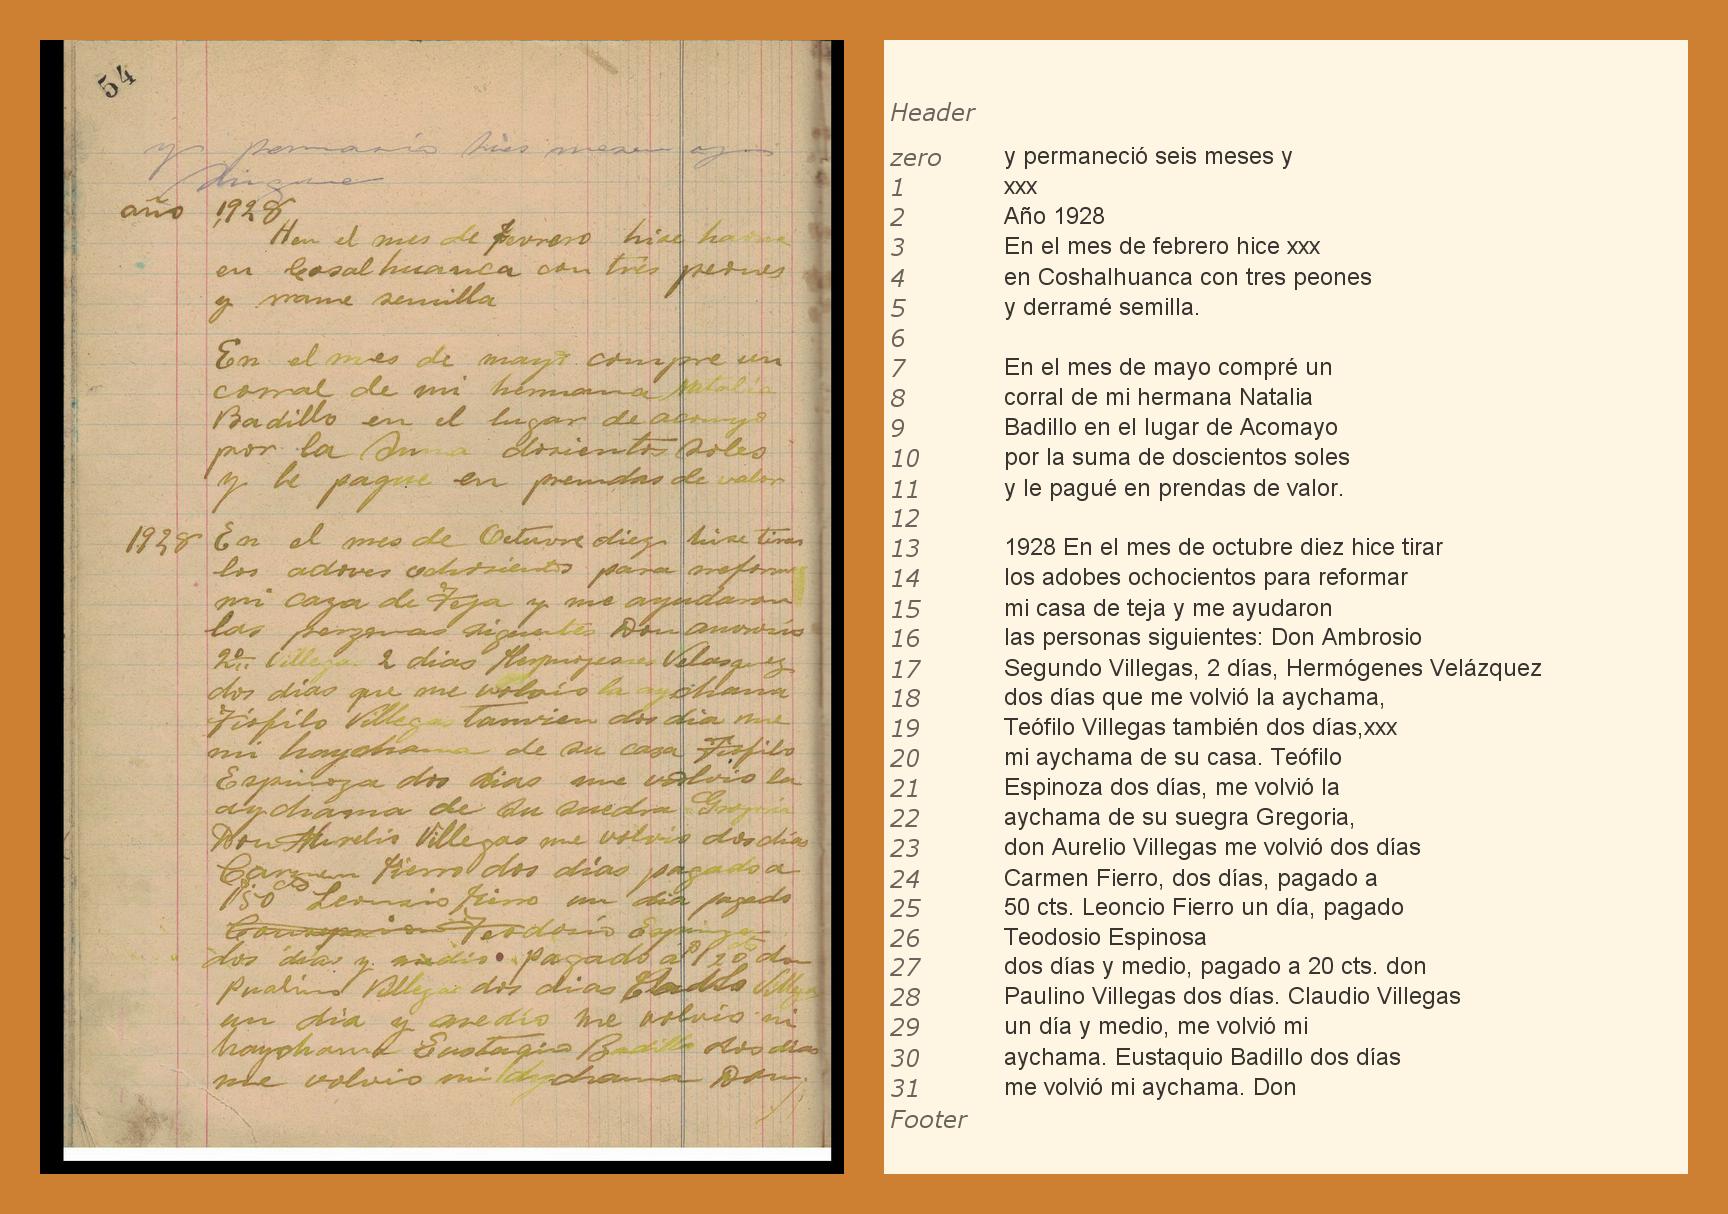 54
y seis meses
año 1928
Hen el mes de febrero hise
en Cosalhuanca con tres peones
y rrame semilla
En el mes de mayo compre un
corral de mi hermana Natalia
Badillo en el lugar de acomyo
por la Suma dosientos soles
y le pague en prendas de valor
1928 En el mes de Octuvre diez hise tirar
los adoves ochosientos para rreformar
mi caza de Teja y me ayudaron
las perzonas siguentes Don
2º Villegas 2 dias Velasquez
dos dias que me volvio la aychama
Tiofilo Villegas tamvien dos dia me
mi haychama de su casa Tiofilo
Espinoza dos dias me volvio la
aychama de su suedra Gregoria
Don Aurelio Villegas me volvio dos dias
Carmen fierro dos dias pagado a
50 cts Leoncio fierro un dia pagado
Teodosio Espinoza
dos dias y medio pagado a 20 don
Paulino Villegas dos dias Villegas
un dia y medio me volvio mi
haychama Eustaquio Badillo dos dias
me volvio mi aychama Don
Header
zero y permaneció seis meses y
1 xxx
2 Año 1928
3 En el mes de febrero hice xxx
4 en Coshalhuanca con tres peones
5 y derramé semilla.
6
7 En el mes de mayo compré un
8 corral de mi hermana Natalia
9 Badillo en el lugar de Acomayo
10 por la suma de doscientos soles
11 y le pagué en prendas de valor.
12
13 1928 En el mes de octubre diez hice tirar
14 los adobes ochocientos para reformar
15 mi casa de teja y me ayudaron
16 las personas siguientes: Don Ambrosio
17 Segundo Villegas, 2 días, Hermógenes Velázquez
18 dos días que me volvió la aychama,
19 Teófilo Villegas también dos días,xxx
20 mi aychama de su casa. Teófilo
21 Espinoza dos días, me volvió la
22 aychama de su suegra Gregoria,
23 don Aurelio Villegas me volvió dos días
24 Carmen Fierro, dos días, pagado a
25 50 cts. Leoncio Fierro un día, pagado
26 Teodosio Espinosa
27 dos días y medio, pagado a 20 cts. don
28 Paulino Villegas dos días. Claudio Villegas
29 un día y medio, me volvió mi
30 aychama. Eustaquio Badillo dos días
31 me volvió mi aychama. Don
Footer